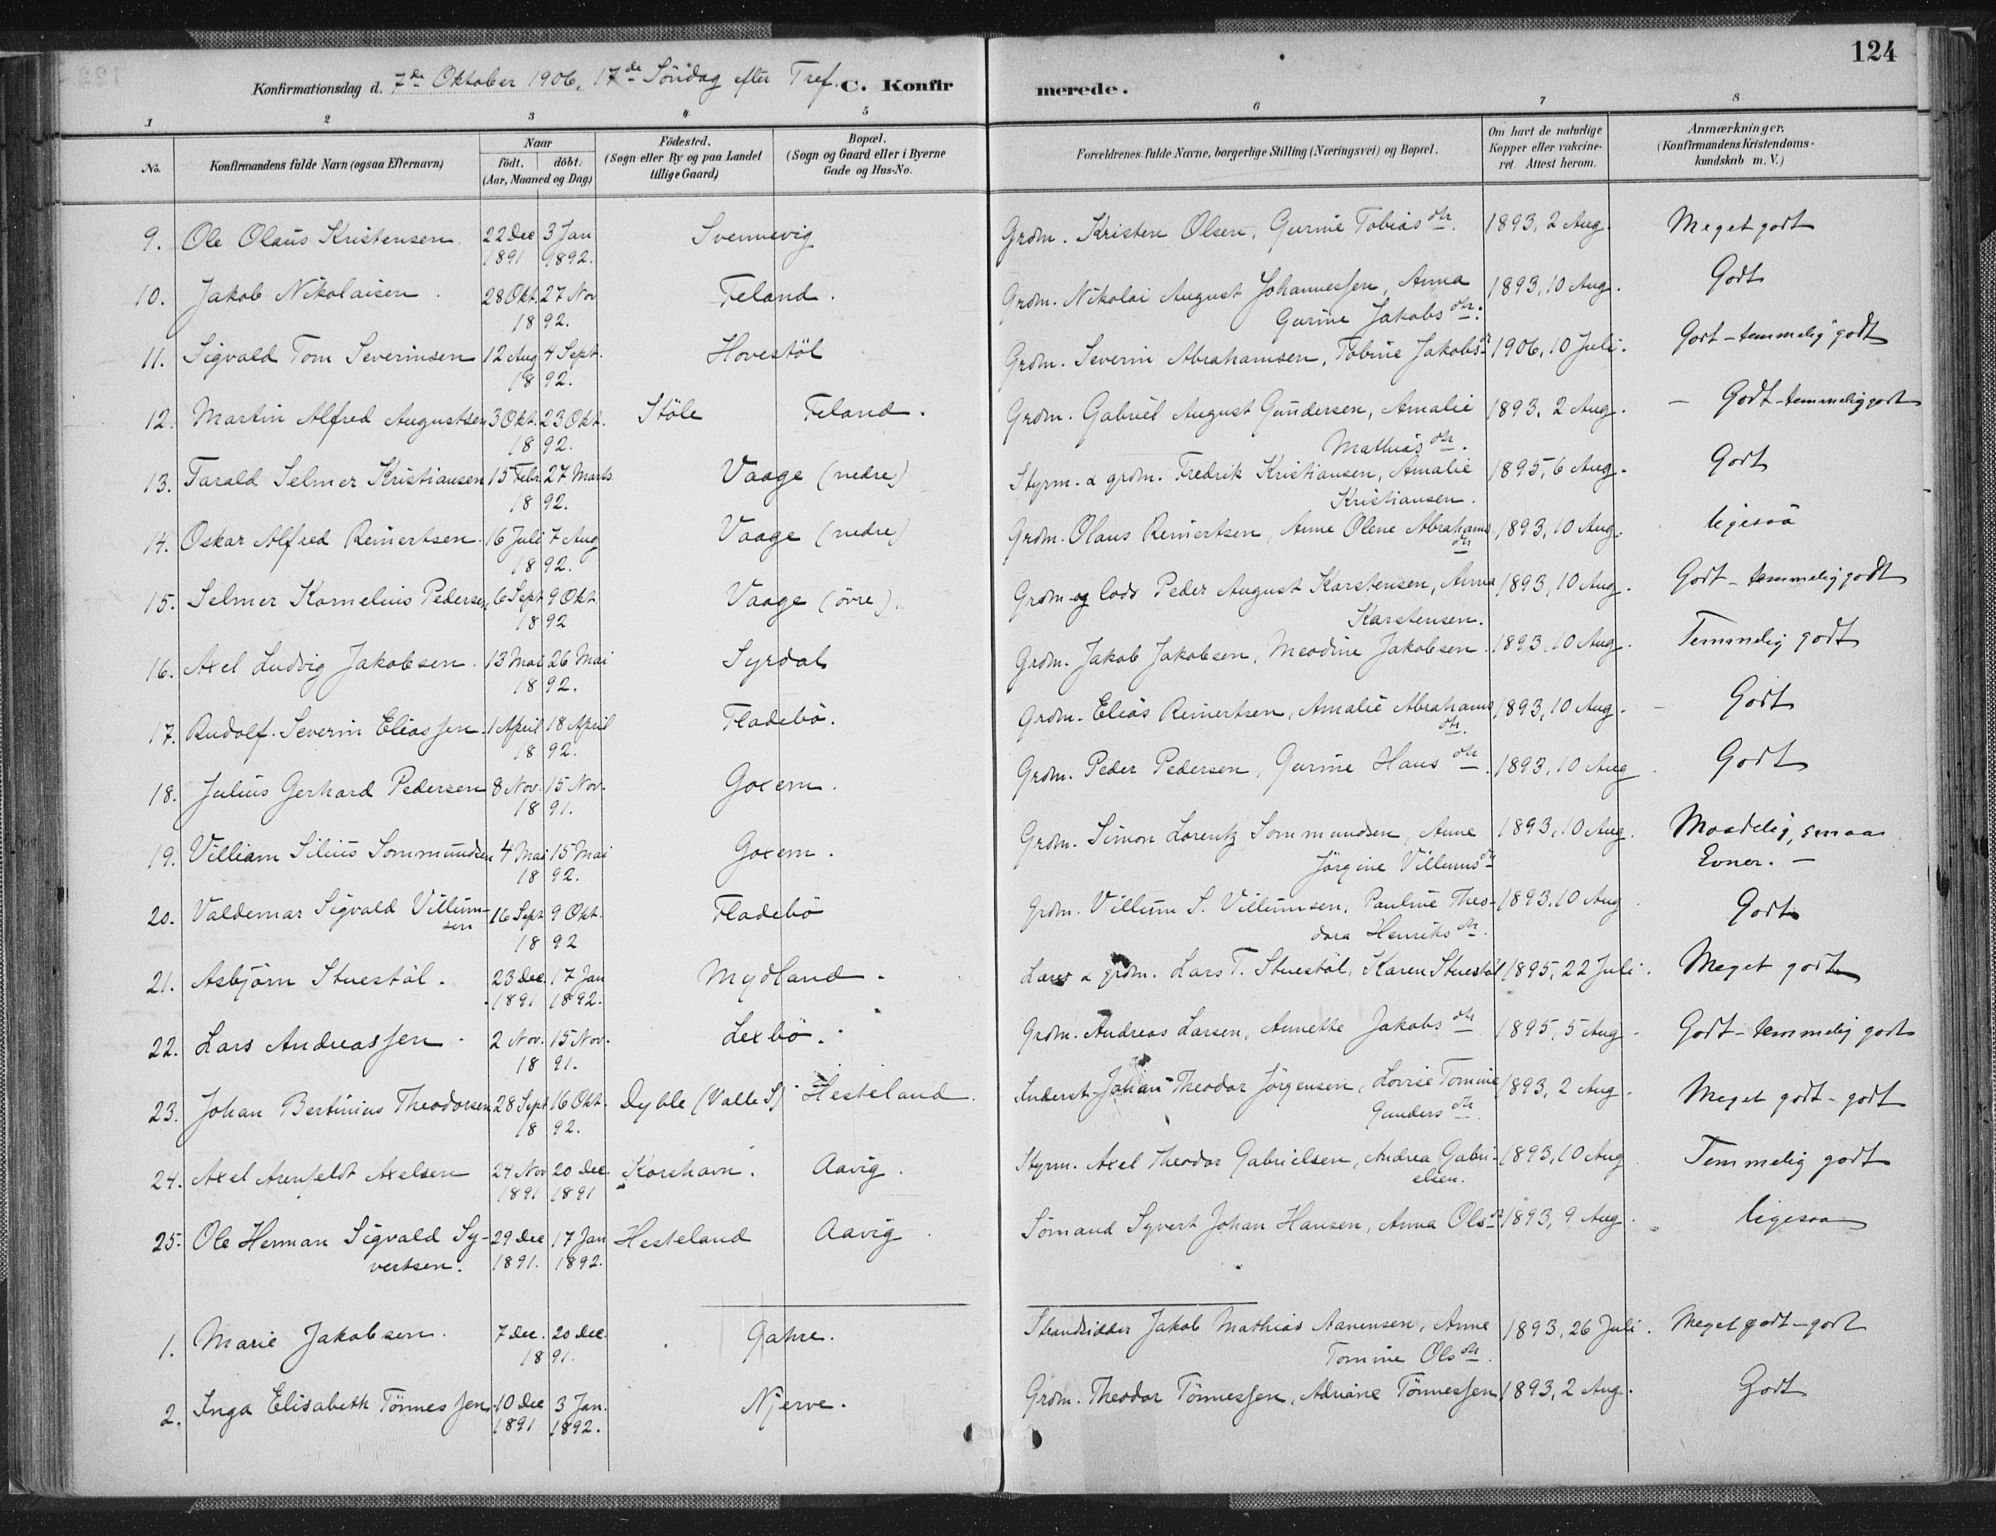 124
Konfirmationsdag d. 7de Oktober 1906, 17de Söndag efter Tref. C. Konfirmerede.
1 2 3 4 5 6 7 8
No. Konfirmandens fulde Navn (ogsaa Efternavn) Naar födt. döbt. (Aar, Maaned og Dag) Födested. (Sogn eller By og paa Landet tillige Gaard) Bopæl. (Sogn og Gaard eller i Byerne Gade og Hus-No. Forældrenes fulde Navne, borgerlige Stilling (Næringsvei) og Bopæl. Om havt de naturlige Kopper eller vakcineret. Attest herom. Anmærkninger. (Konfirmandens Kristendomskundskab m. V.)
9. Ole Olaus Kristensen 22 Dec 1891 3 Jan 1892. Svennevig Grdm. Kristen Olsen, Gurine Tobias dtr. 1893, 2 Aug. Meget godt
10. Jakob Nikolaisen. 28 Okt. 27 Nov 1892. Feland. Grdm. Nikolai August Johannessen, Anna Gurine Jakobs dtr. 1893, 10 Aug. Godt
11. Sigvald Tom Severinsen 12 Aug 4 Sept. 1892. Hovestöl Grdm. Severin Abrahamsen, Tobine Jakobs dr 1906, 10 Juli. Godt - temmelig godt
12. Martin Alfred Augustsen 3 Okt. 23 Okt. 1892. Stöle Feland. Grdm. Gabriel August Gundersen, Amalie Mathias dtr. 1893, 2 Aug. - Godt - temmelig godt
13. Tarald Selmer Kristiansen 15 Febr. 27 Marts 1892. Vaage (nedre) Styrm. & grdm. Fredrik Kristiansen, Amalie Kristiansen. 1895, 6 Aug. Godt
14. Oskar Alfred Reinertsen. 16 Juli 7 Aug 1892. Vaage (nedre) Grdm. Olaus Reinertsen, Anne Olene Abrahams dtr 1893, 10 Aug. ligesaa
15. Selmer Kornelius Pedersen 6 Sept 9 Okt 1892 Vaage (övre). Grdm og lods Peder August Karstensen, Anna Karstensen. 1893, 10 Aug. Godt - temmelig godt
16. Axel Ludvig Jakobsen. 13 Mai 26 Mai 1892. Syrdal Grdm. Jakob Jakobsen, Meadine Jakobsen. 1893, 10 Aug. Temmelig godt
17. Rudolf Severin Eliassen. 1 April 18 April 1892. Fladebö. Grdm. Elias Reinertsen, Amalie Abrahams dtr. 1893, 10 Aug. - Godt
18. Julius Gerhard Pedersen 8 Nov. 15 Nov. 1891. Goxem. Grdm. Peder Pedersen, Gurine Hans dtr. 1893, 10 Aug. Godt
19. Villiam Silius Sommundsen 4 Mai 15 Mai 1892. Goxem. Grdm. Simon Lorentz Sommundsen, Anne Jörgine Villums dtr 1893, 10 Aug. Maadelig, smaa Evner. -
20. Valdemar Sigvald Villumsen 16 Sept 9 Okt. 1892 Fladebö Grdm. Villum S. Villumsen, Pauline Theodora Henriks dtr. 1893, 10 Aug Godt
21. Asbjörn Stuestöl. 23 Dec. 1891 17 Jan 1892. Mydland. Lærer & grdm. Lars T. Stuestöl, Karen Stuestöl 1895, 22 Juli. Meget godt
22. Lars Andreassen. 2 Nov. 15 Nov. 1891. Lexbö. Grdm. Andreas Larsen, Annette Jakobs dtr 1895, 5 Aug. Godt - temmelig godt
23. Johan Bertinius Theodorsen 28 Sept 16 Okt. 1892. Dyble (Valle S) Hesteland. Inderst Johan Theodor Jörgensen, Lovise Tomine Gunders dtr. 1893, 2 Aug. Meget godt - godt
24. Axel Arenfeldt Axelsen 24 Nov 1891 20 Dec 1891 Korshavn. Aavig. Styrm. Axel Theodor Gabrielsen, Andrea Gabrielsen. 1893, 10 Aug Temmelig godt
25. Ole Herman Sigvald Syvertsen. 29 Dec 1891. 17 Jan 1892. Hesteland Aavig. Sömand Syvert Johan Hansen, Anna Ols dr 1893, 9 Aug. ligesaa
1. Marie Jakobsen. 7 Dec. 20 Dec. 1891. Gahre. Strandsidder Jakob Mathias Aanensen, Anne Tomine Ols dtr. 1893, 26 Juli. Meget godt - godt
2. Inga Elisabeth Tönnessen 10 Dec 1891 3 Jan. 1892. Njerve. Grdm. Theodor Tönnessen, Adriane Tönnessen 1893, 2 Aug. Godt